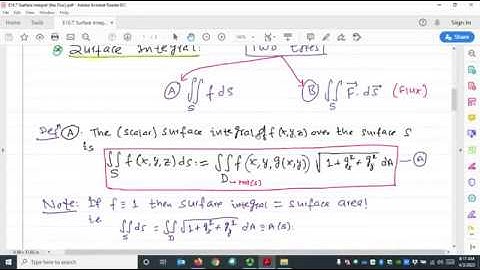 E16.7 Surface Integral (the Flux).pdf - Adobe Acrobat Reader DC
Home Tools
Sign In
Surface Integral: Two types
Ⓐ ∬_S f ds Ⓑ ∬_S F⃗ . ds⃗ (Flux)
Def Ⓐ. The (scalar) surface integral of f(x,y,z) over the surface S
is
∬_S f(x,y,z) ds := ∬_D f(x,y,g(x,y)) √(1+g_x²+g_y²) dA — Ⓐ
Note: If f ≡ 1 then surface integral = surface area!
i.e. ∬_S ds = ∬_D √(1+g_x²+g_y²) dA = A(S).
Type here to search